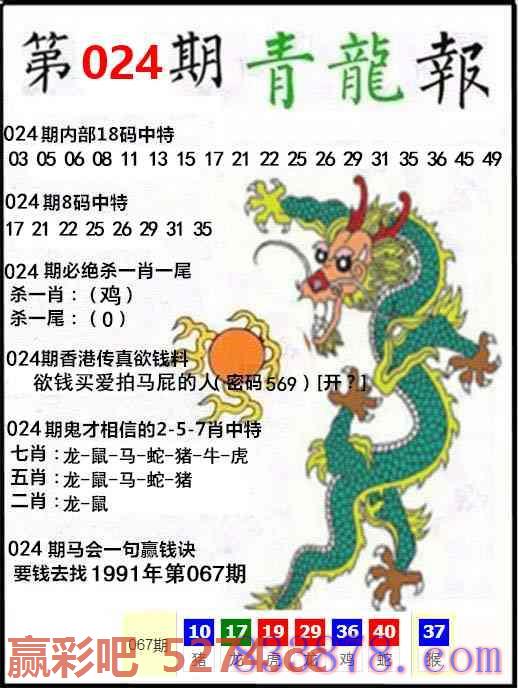 第024期青龍報
024期内部18码中特
03 05 06 08 11 13 15 17 21 22 25 26 29 31 35 36 45 49
024期8码中特
17 21 22 25 26 29 31 35
024 期必绝杀一肖一尾
杀一肖：（鸡）
杀一尾：（0）
024期香港传真欲钱料
欲钱买爱拍马屁的人（密码569）[开？]
024期鬼才相信的2-5-7肖中特
七肖：龙-鼠-马-蛇-猪-牛-虎
五肖：龙-鼠-马-蛇-猪
二肖：龙-鼠
024 期马会一句赢钱诀
要钱去找1991年第067期
067期 10 17 19 29 36 40 37
猪 龙 虎 龙 鸡 蛇 猴
赢彩吧